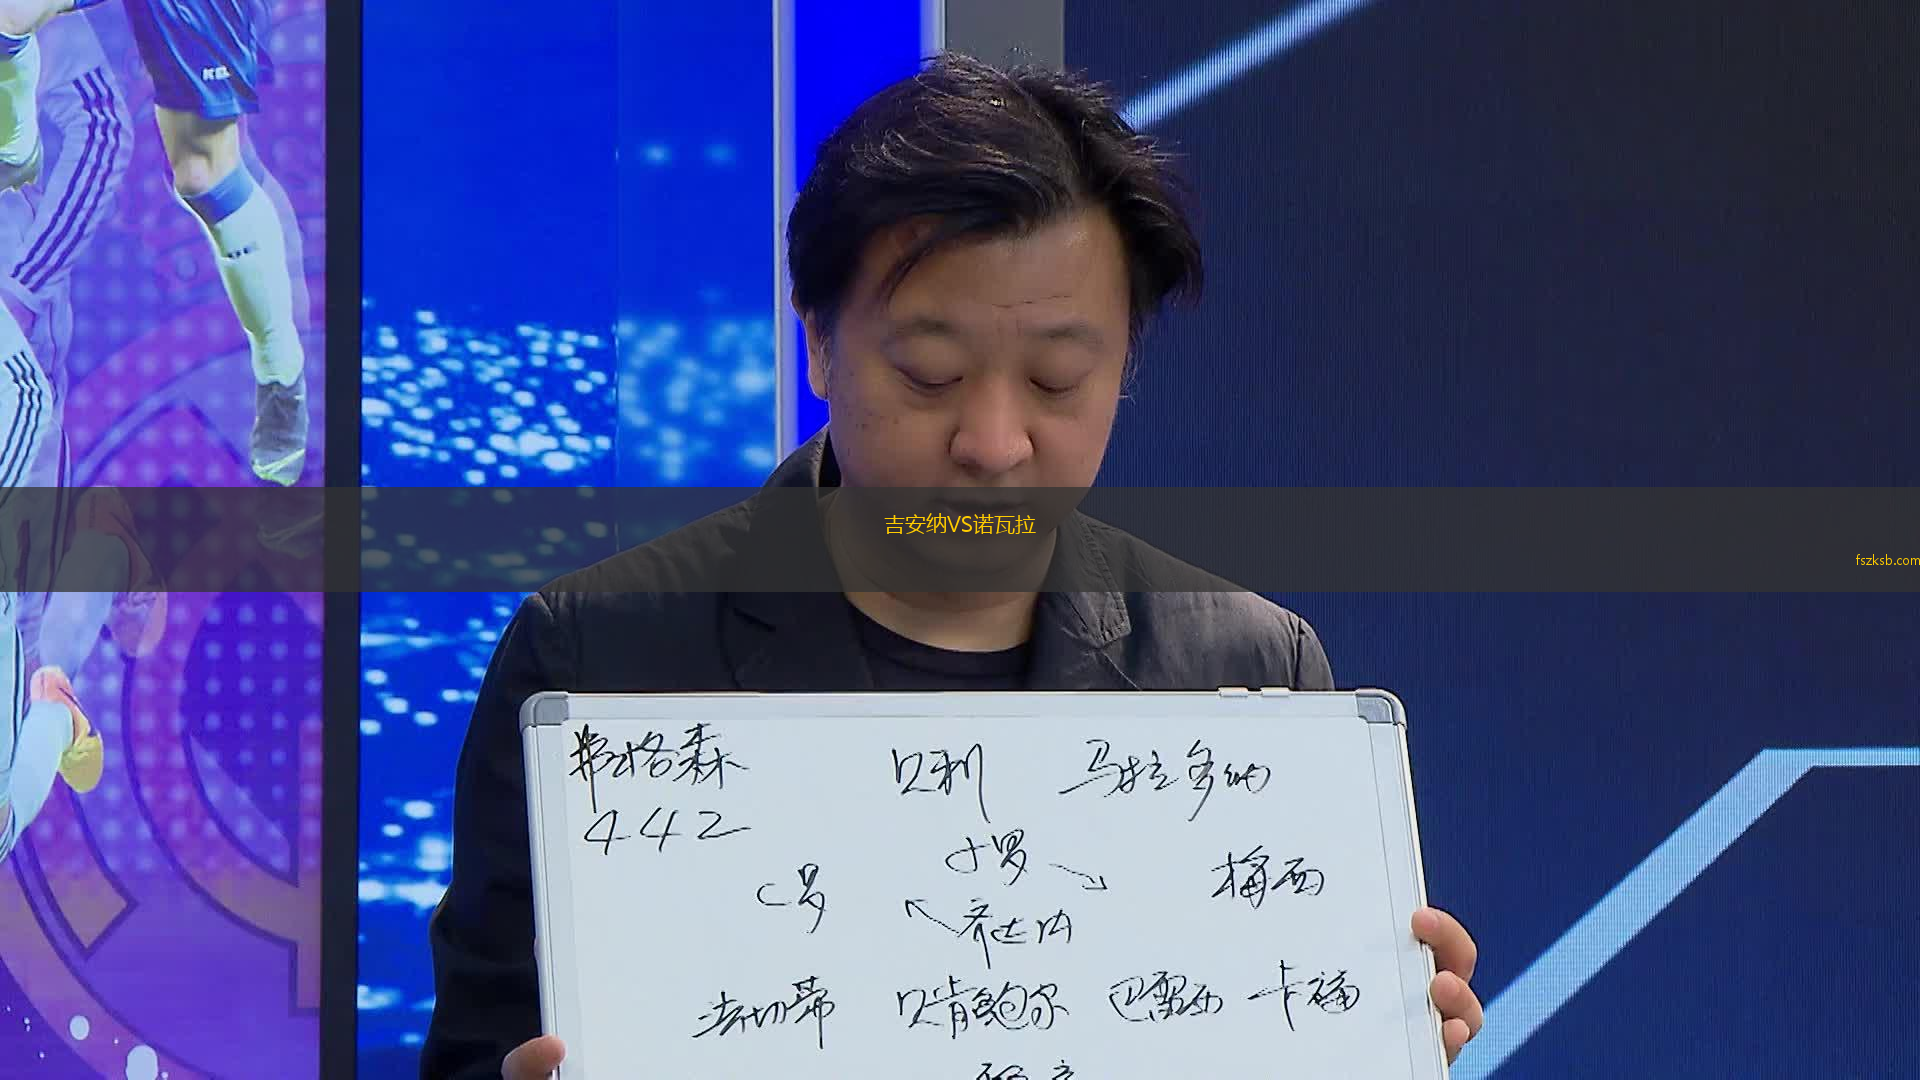 KEL
吉安纳VS诺瓦拉
fszksb.com
弗格森 贝利 马拉多纳
442
小罗
C罗 梅西
齐达内
法切蒂 贝肯鲍尔 巴雷西 卡福